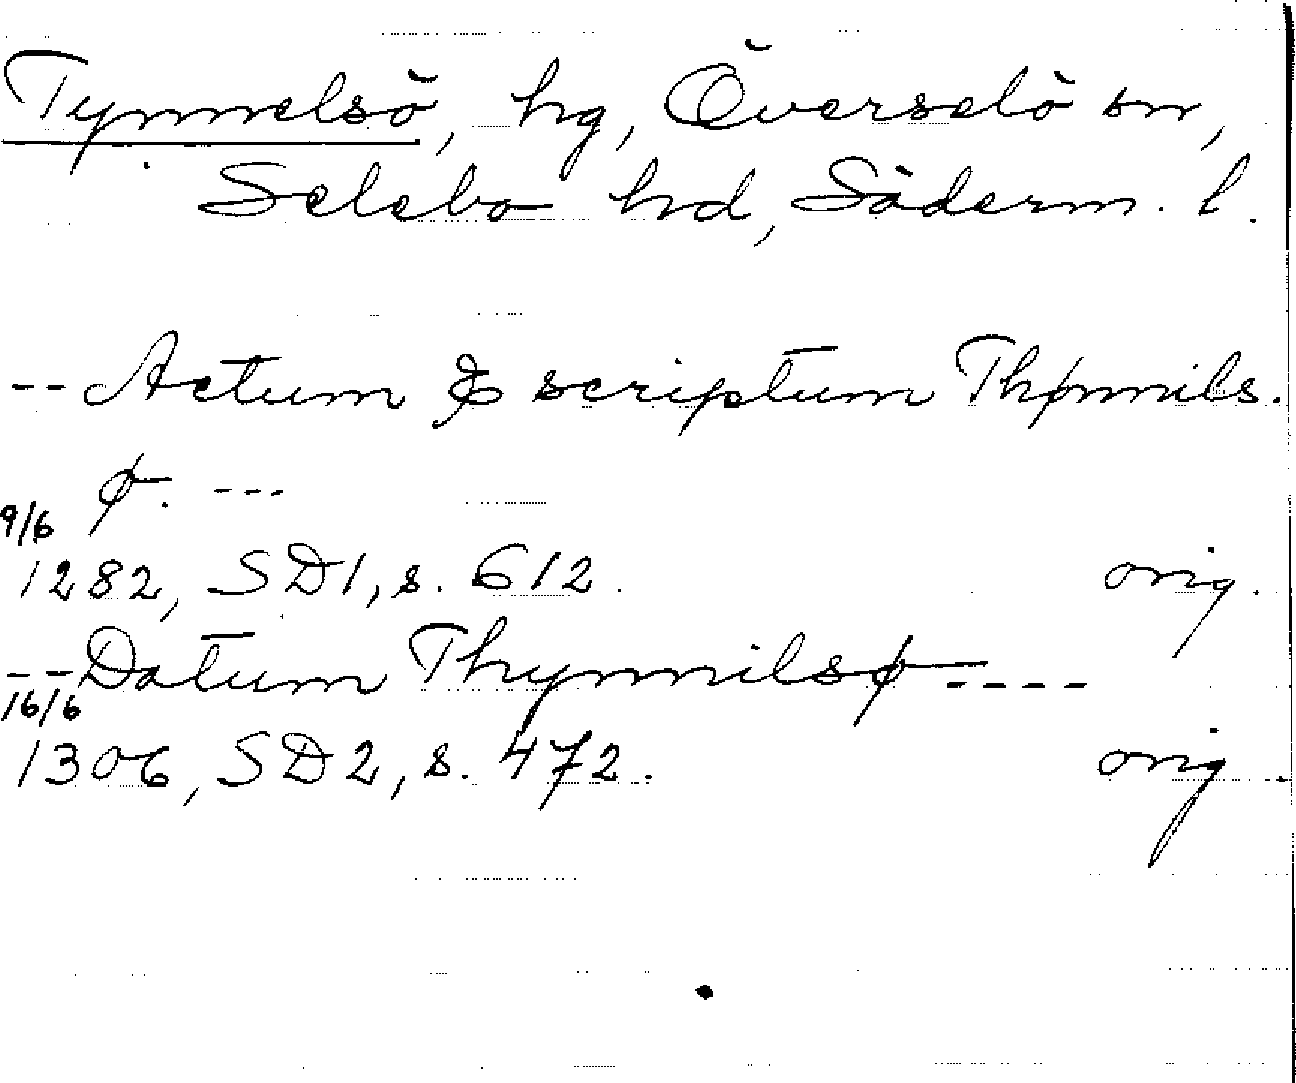 Tynnelsö, hg, Överselö sn,
Selebo hd, Söderm. l.
-- Actum & scriptum Thønnils.
ø. ---
9/6
1282, SD1, s. 612. orig.
-- Datum Thynnilsø ----
16/6
1306, SD2, s. 472. orig.